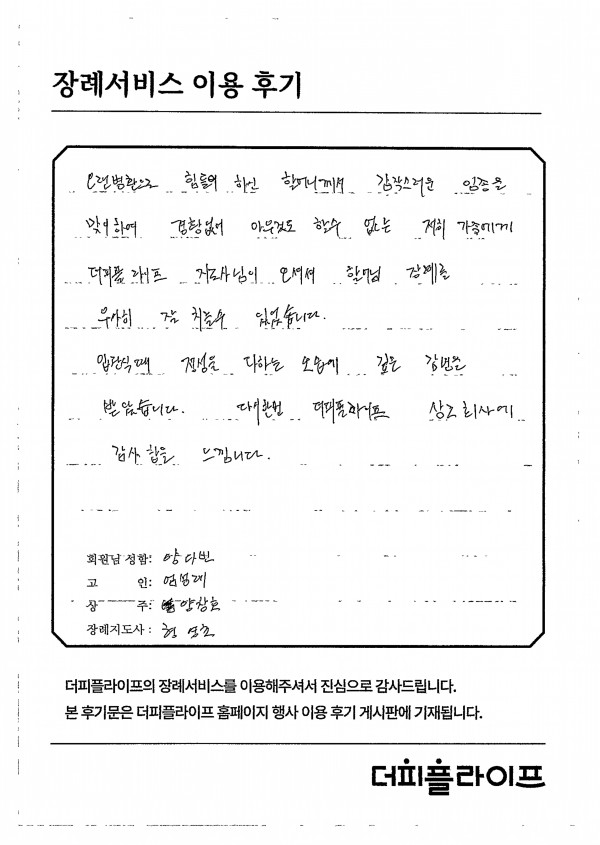 장례서비스 이용 후기
오랜병환으로 힘들어 하신 할머니께서 갑작스러운 임종을
맞이하여 경황없이 아무것도 할수 없는 저희 가족에게
더피플 라이프 지도사님이 오셔서 할머님 장례를
무사히 잘 치를수 있었습니다.
입관식때 정성을 다하는 모습에 깊은 감명을
받았습니다. 다시한번 더피플라이프 상조회사에
감사함을 느낍니다.
회원님 성함: 양다빈
고 인:
상 주: 양창호
장례지도사 :
더피플라이프의 장례서비스를 이용해주셔서 진심으로 감사드립니다.
본 후기문은 더피플라이프 홈페이지 행사 이용 후기 게시판에 기재됩니다.
더피플라이프